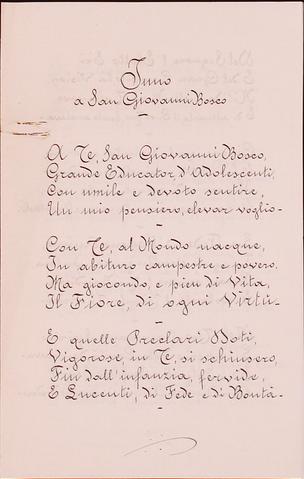 Inno
a San Giovanni Bosco
A Te, San Giovanni Bosco,
Grande Educator d'Adolescenti,
Con umile e devoto sentire,
Un mio pensiero, elevar voglio-
Con Te, al Mondo nacque,
In abituro campestre e povero,
Ma giocondo, e pien di Vita,
Il Fiore, di ogni Virtù-
E quelle Preclari Doti,
Vigorose, in Te, si schiusero,
Fin dall'infanzia, fervide,
E Lucenti, di Fede e di Bontà-